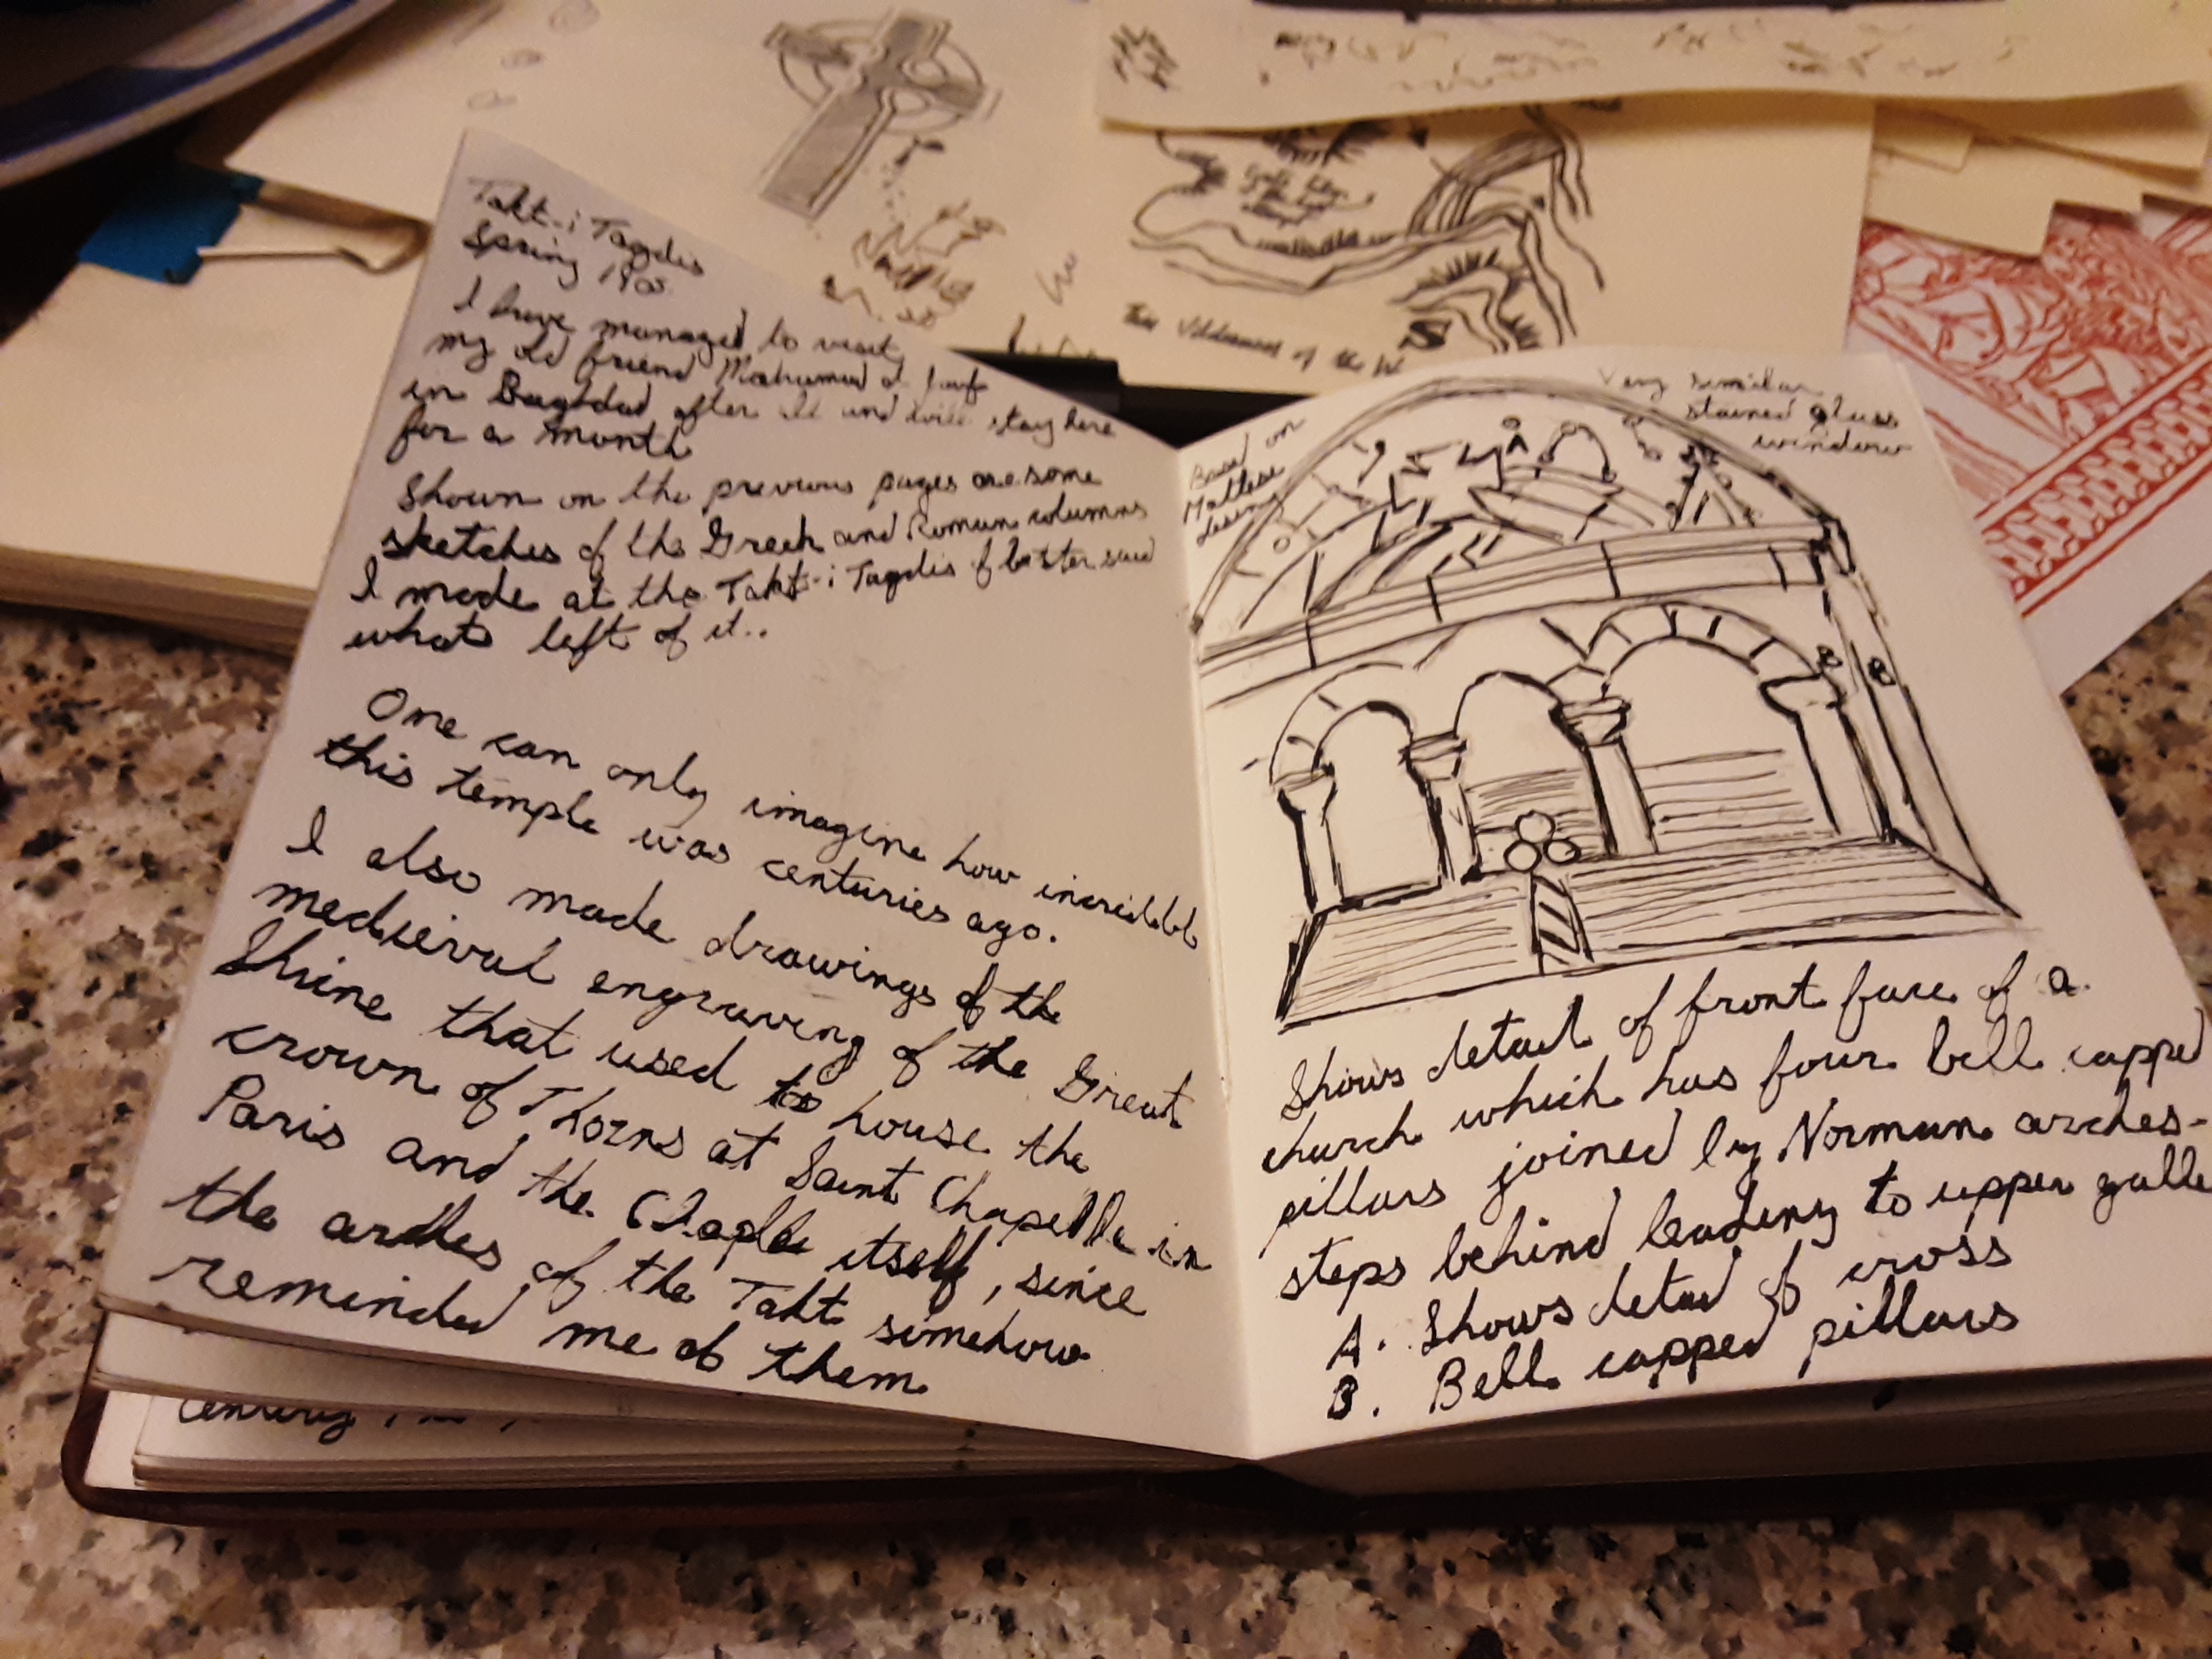 Takt-i Tagdis
Spring
I have managed to visit
my old friend
in Bagdad after all and will stay here
for a month
Shown on the previous pages are some
sketches of the Greek and Roman columns
I made at the Takt-i Tagdis
whats left of it..
One can only imagine how
this temple was centuries ago.
I also made drawings of the
medieval engraving of the Great
Shine that used to house the
crown of Thorns at Saint Chapelle in
Paris and the itself, since
the arches of the Takt somehow
reminded me of them
century
Based on
Maltese
Very similar
stained glass
window
B B
Shows detail of front face of a
church which has four bell capped
pillars joined by Norman arches-
steps behind leading to upper galle
A. Shows detail of cross
B. Bell capped pillars
of the